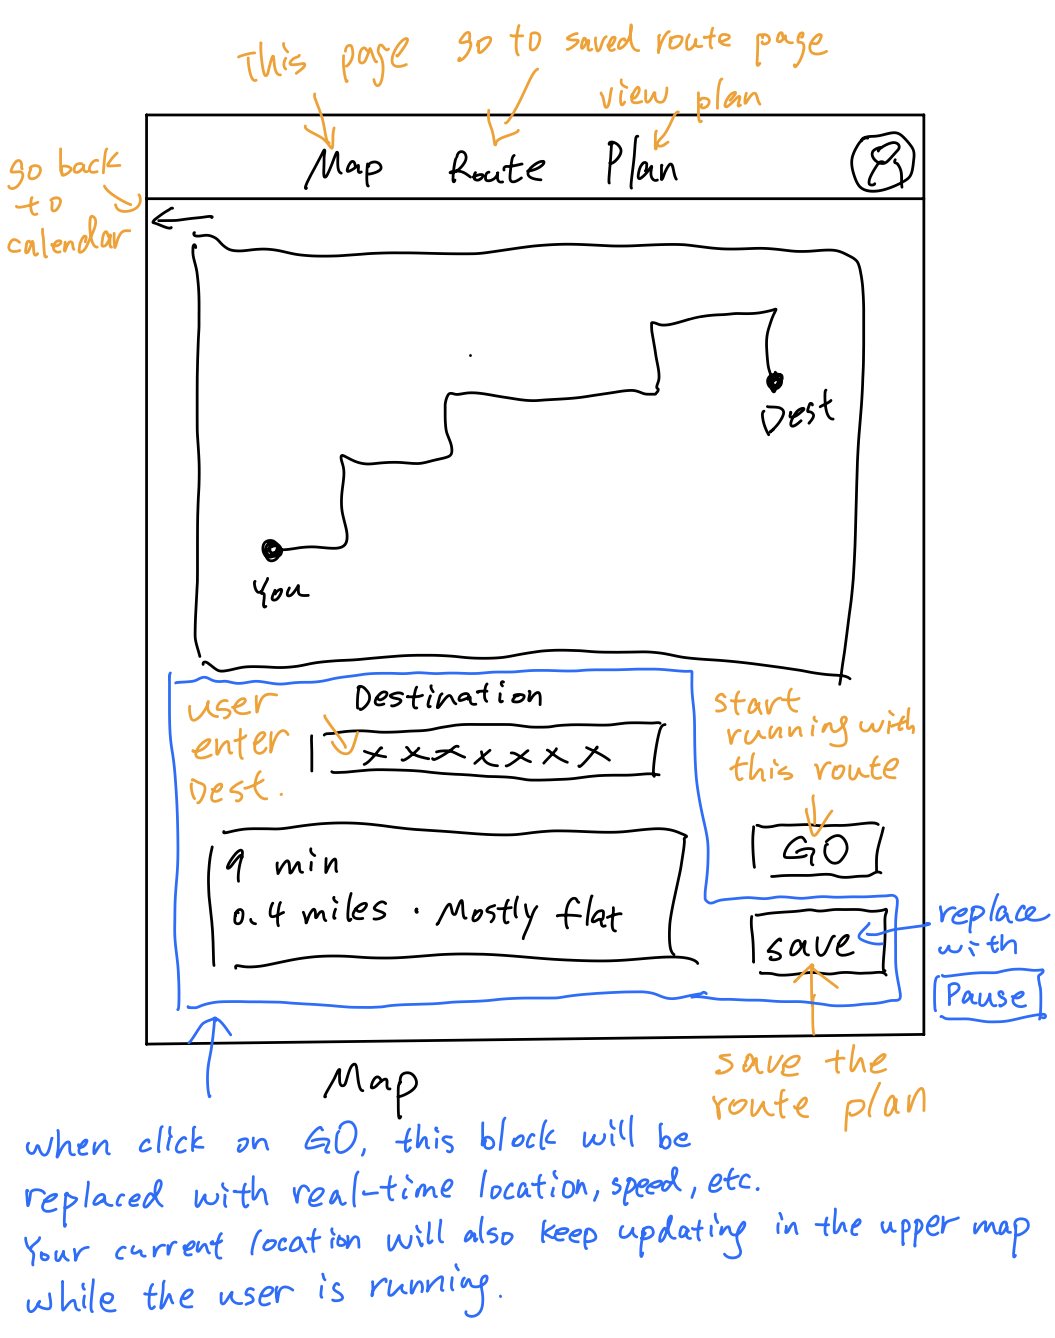 This page
go to saved route page
view plan
Map Route Plan
go back
to
calendar
Dest
You
Destination
user
enter
Dest.
x x x x x x x
start
running with
this route
GO
9 min
0.4 miles · Mostly flat
save
replace
with
Pause
Map
save the
route plan
when click on GO, this block will be
replaced with real-time location, speed, etc.
Your current location will also keep updating in the upper map
while the user is running.